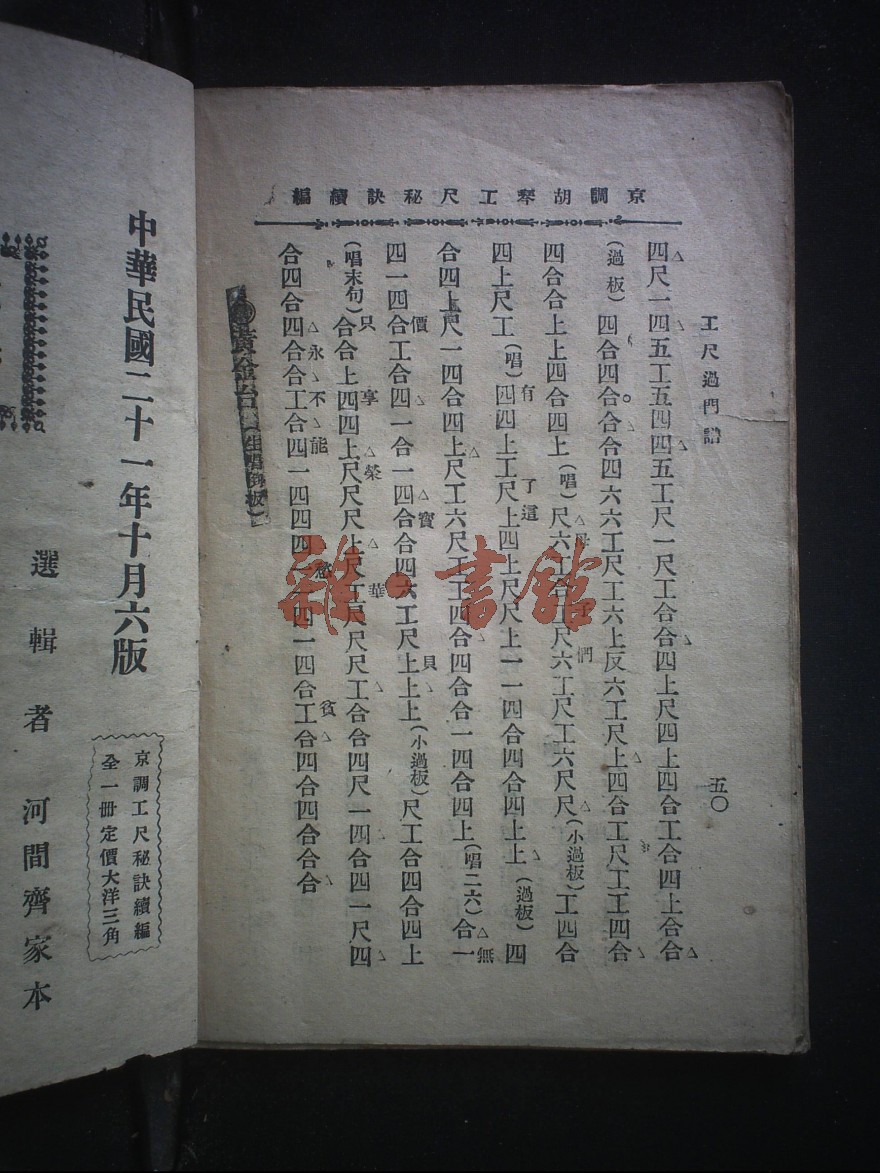 京調胡琴工尺秘訣續編
工尺過門譜
五〇
四尺一四五工五四四五工尺一尺工合合四上尺四上四合工合四上合合
(過板)四合四合合合四六六工尺工六上反六工尺上四合工尺工工四合
四合合上上四合四上(唱)尺六工合工尺六工尺工六尺尺(小過板)工四合
們
四上尺工(唱)四四上工尺上四上尺尺上一一四合四合四上上(過板)四
有了這
合四上尺一四合四上尺工六尺工工四合四合合一四合四上(唱二六)合一
無
四一四合工合四一合一四合合四六工尺上上上(小過板)尺工合四合四上
價寶貝
(唱末句)合合上四四上尺尺尺上尺工尺尺尺工合合四尺一四合四一尺四
只享榮華
合四合四合合工合四一四四四一四一四合工合四合四合合合
永不能貧
雜·書館
中華民國二十一年十月六版
選輯者 河間齊家本
京調工尺秘訣續編
全一冊定價大洋三角